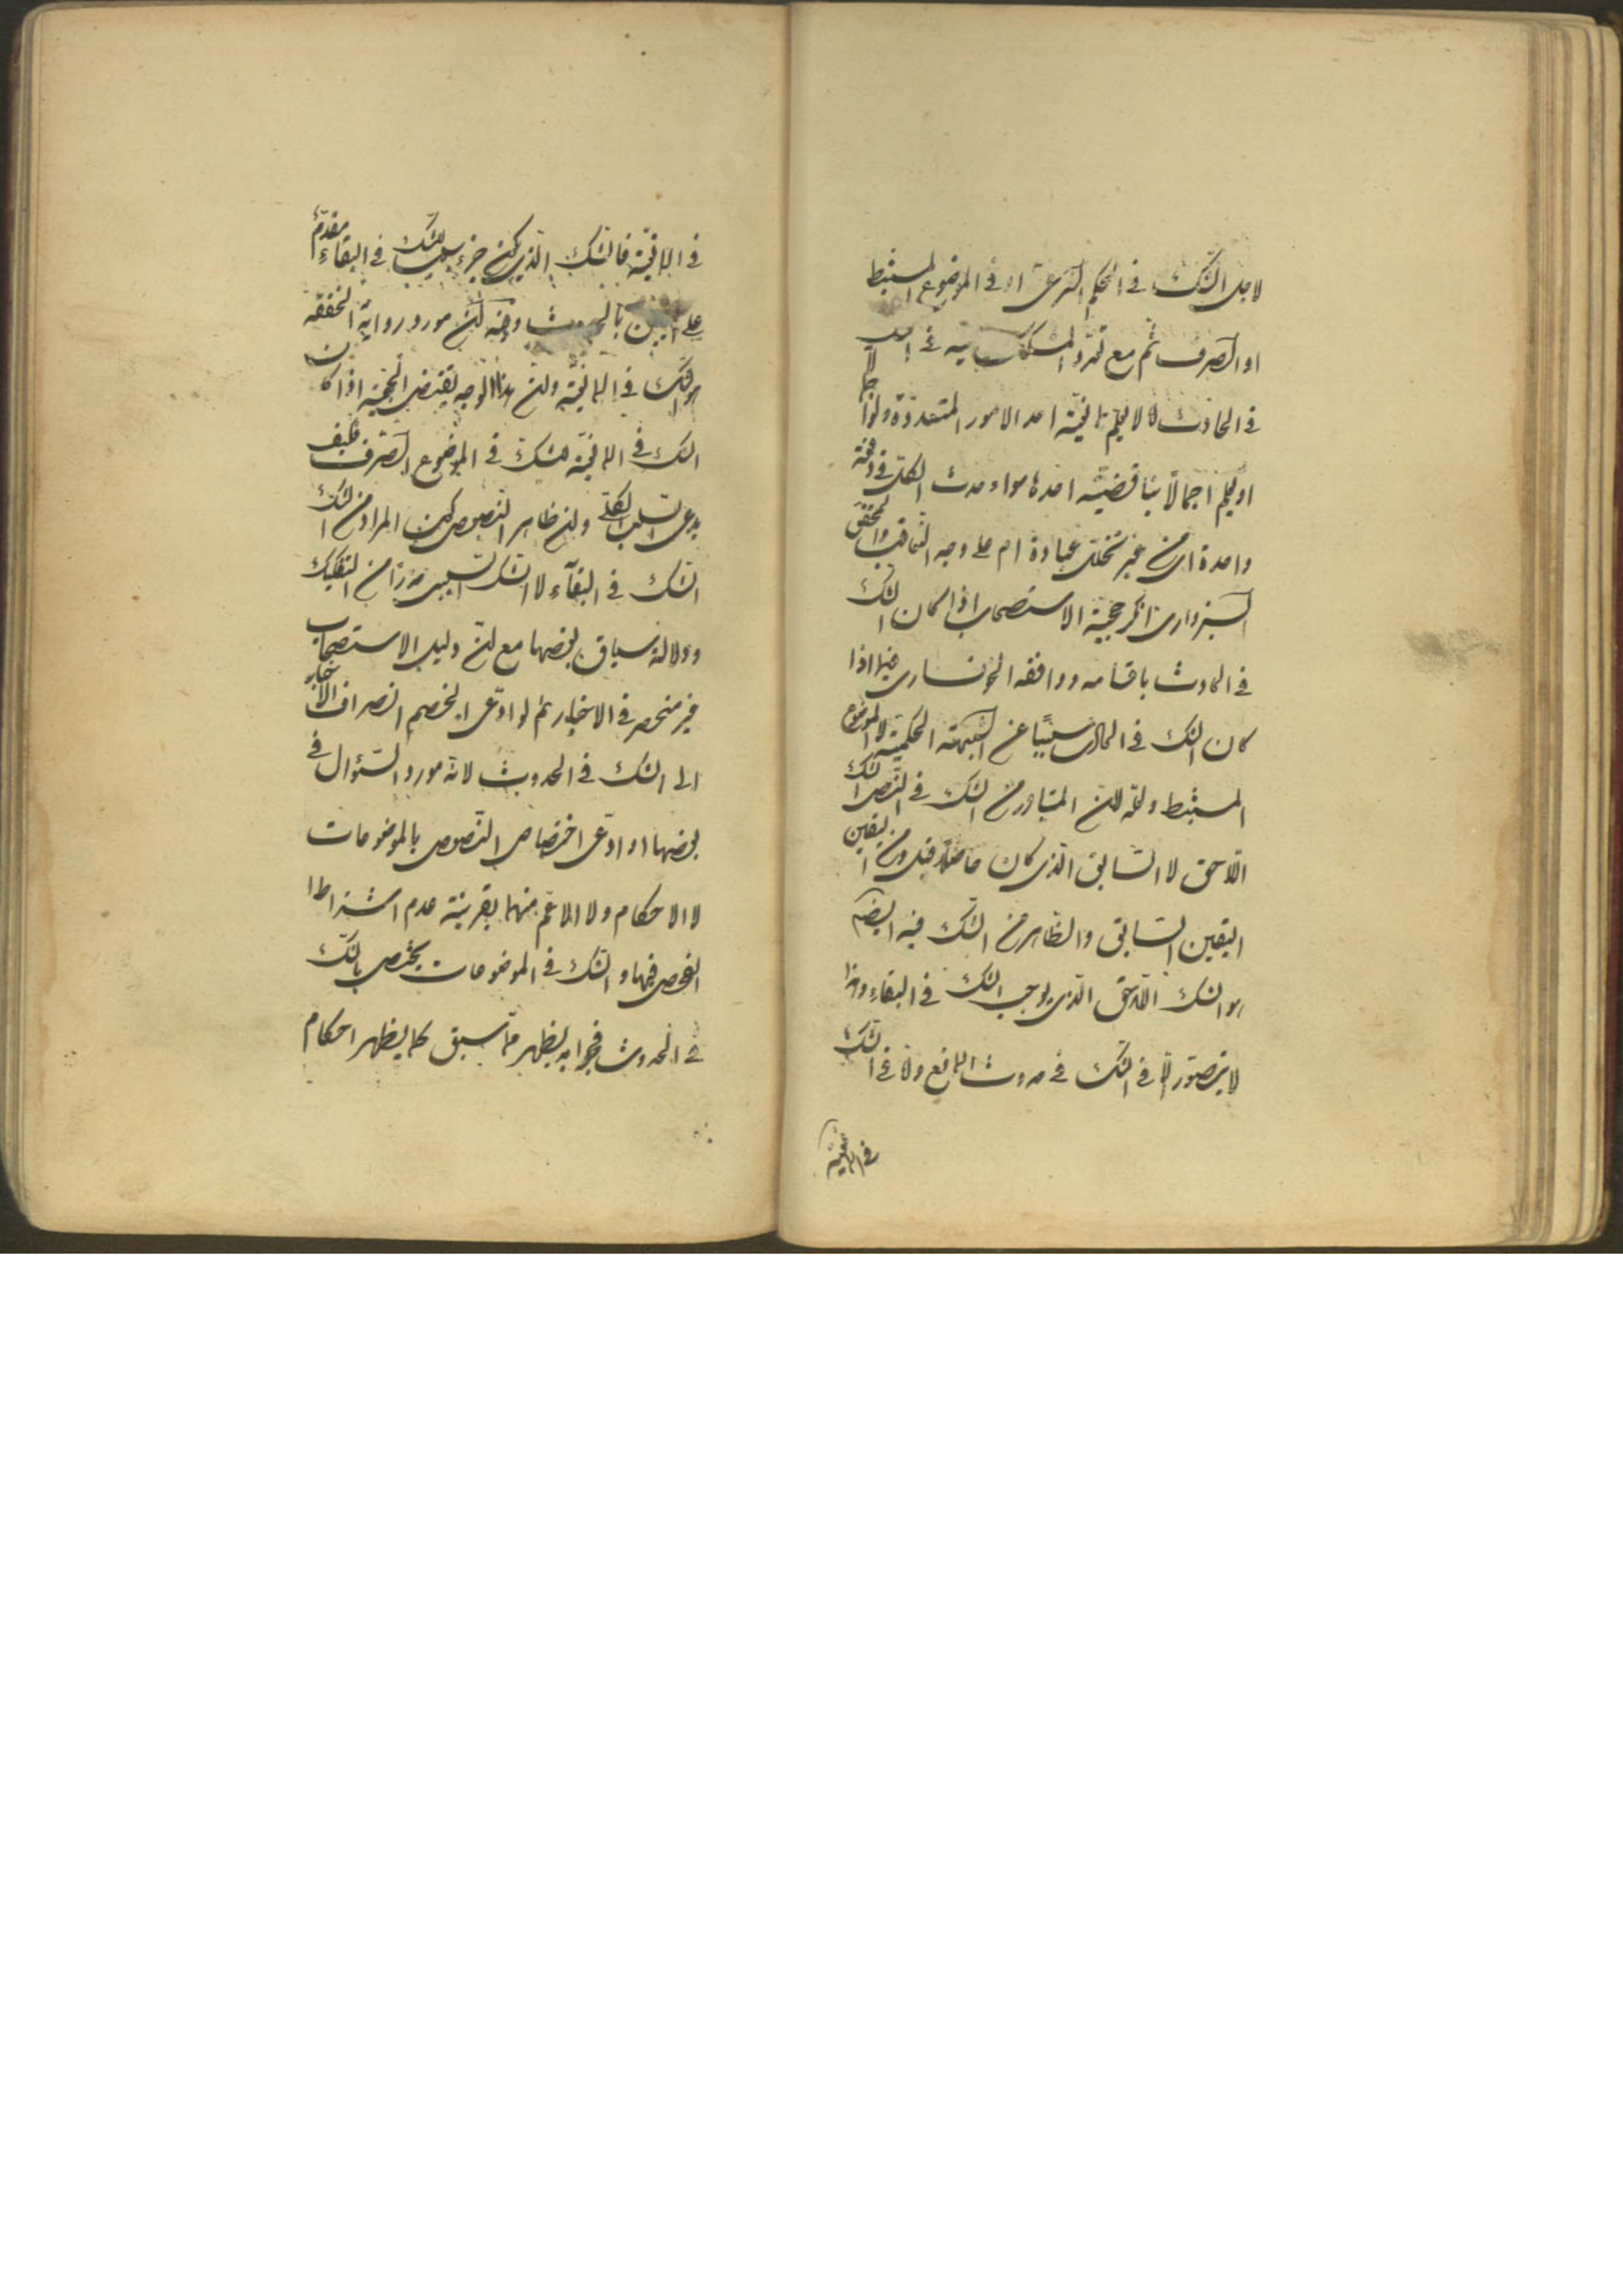 لاجل الشك في الحكم الشرعي او في الموضوع المستنبط
او الصرف ثم مع تعدد المشكك فيه في
في الحادث لا لا يعلم مانعية احد الامور المتعددة ولو اجمالا
او يعلم اجمالا بناقضية احدها سواء حدث الكل في دفعة
واحدة اي من غير تخلل عبادة ام على وجه التعاقب والمحقق
السبزواري انكر حجية الاستصحاب اذا كان الشك
في الحادث باقسامه ووافقه الخونساري فيما اذا
كان الشك في الحادث مسببا عن الشبهة الحكمية لا الموضوع
المستنبط ولعله لان المتبادر من الشك في النص الشك
اللاحق لا السابق الذي كان حاصلا قبل ومن اليقين
اليقين السابق والظاهر من الشك فيه ايضا
هو الشك اللاحق الذي يوجب الشك في البقاء وهذا
لا يتصور الا في الشك في حدوث المانع ولا في الشك
في المانعية
في المانعية فالشك الذي يكون جزء سبب للشك في البقاء مقدم
على اليقين بالحدوث وفيه ان مورد رواية الخفقة
هو الشك في المانعية وان هذا الوجه يقتضي الحجية اذا كان
الشك في المانعية للشك في الموضوع الصرف فكيف
يدعى السلب الكلي وان ظاهر النصوص كون المراد من الشك
الشك في البقاء لا الشك السببي حذرا من التفكيك
ودلالة سياق بعضها مع ان دليل الاستصحاب
غير منحصر في الاخبار ثم لو ادعى الخصم انصراف الاخبار
الى الشك في الحدوث لانه مورد السؤال في
بعضها او ادعى اختصاص النصوص بالموضوعات
لا الاحكام ولا الاعم منهما بقرينة عدم اشتراط
الفحص فيها والشك في الموضوعات يختص بالشك
في الحدوث فجوابه يظهر مما سبق كما يظهر احكام